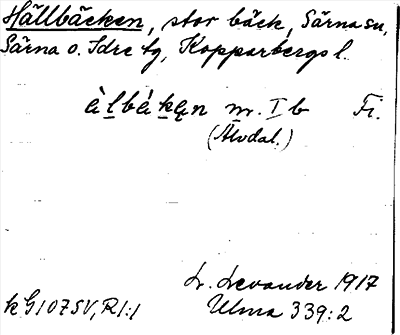 Hällbäcken, stor bäck, Särna sn,
Särna o. Idre tg, Kopparbergs l.
àlbákęn m. I b Fi.
(Älvdal.)
L. Levander 1917
kG107SV, R1:1 Ulma 339:2